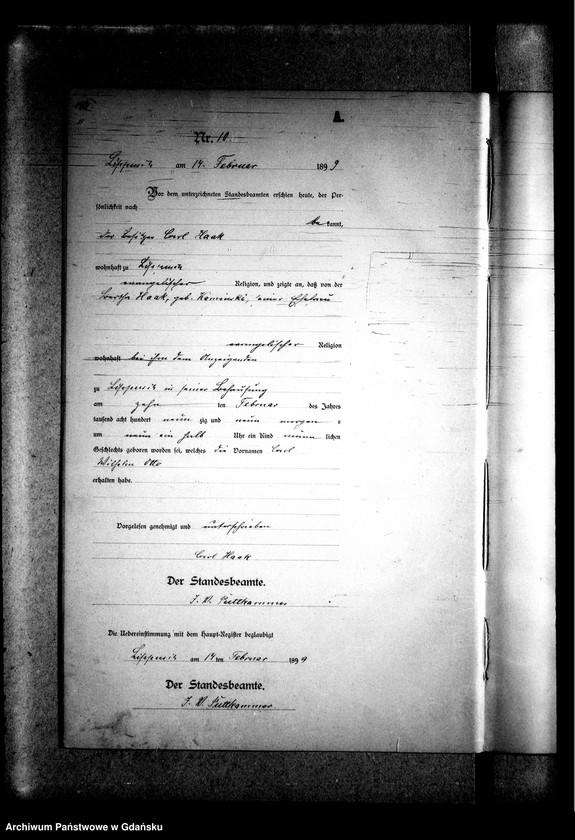 A.
Nr. 10.
am 14. Februar 1899
Vor dem unterzeichneten Standesbeamten erschien heute, der Per-
sönlichkeit nach
be kannt,
der Besitzer Carl Haak
wohnhaft zu
evangelischer Religion, und zeigte an, daß von der
Bertha Haak, geb. Kaminski, seiner Ehefrau
evangelischer Religion
wohnhaft bei ihm dem Anzeigenden
zu in seiner Behausung
am zehn ten Februar des Jahres
tausend acht hundert neun zig und neun morgens
um neun ein halb Uhr ein Kind männ lichen
Geschlechts geboren worden sei, welches die Vornamen Carl
Wilhelm Otto
erhalten habe.
Vorgelesen genehmigt und unterschrieben
Carl Haak
Der Standesbeamte.
Puttkammer
Die Uebereinstimmung mit dem Haupt-Register beglaubigt
am 14 ten Februar 1899
Der Standesbeamte.
Puttkammer
Archiwum Państwowe w Gdańsku